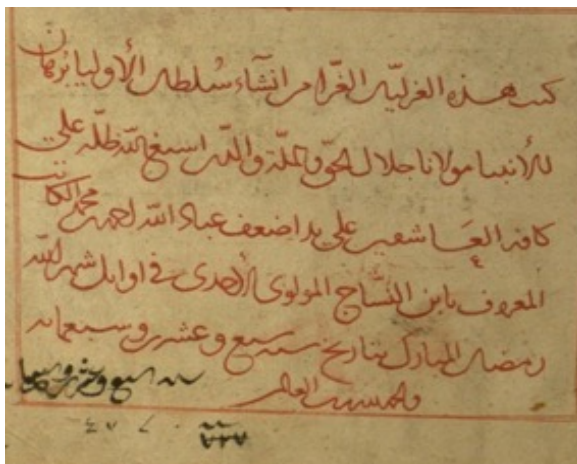 كتب هذه الغزلية الغرا من انشآء سُلطان الأوليا برهان
للأنبيا مولانا جلال الحقّ والملّة والدّين اسبغ الله ظلّه علي
كافة العَاشقين علي يد اضعف عباد الله احمد بن محمد الكاتب
المعروف بابن النسّاج المولوى الأحدى فى اوايل شهر الله
رمضان المبارك بتاريخ سنه سبع وعشرين وسبعمايه
سنه سبع وعشرين وسبعمايه
٧٢٧